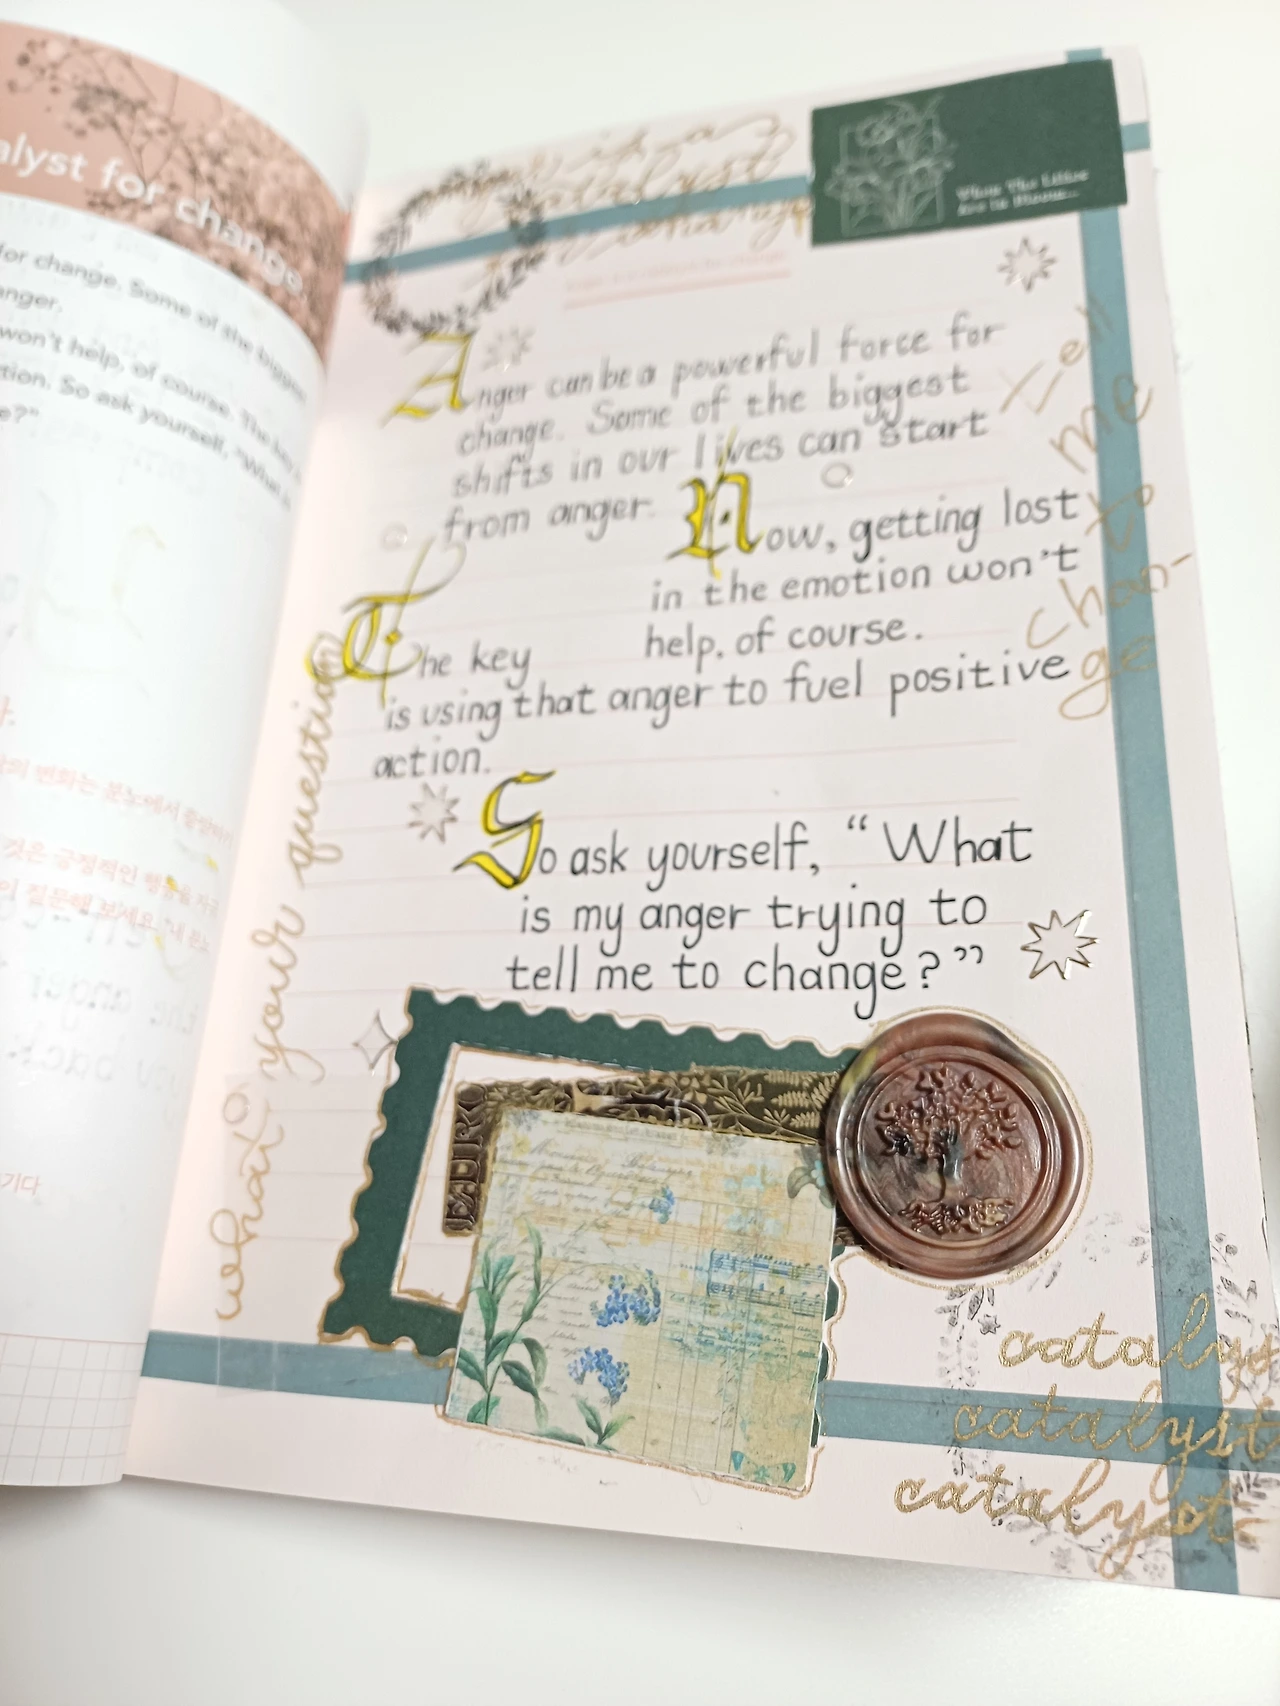 alyst for change
for change. Some of the bigges
anger.
won't help, of course. The key
tion. So ask yourself, "What
e?"
is a
catalyst
change
When The Lilies
Are In Bloom...
Anger can be a powerful force for
change. Some of the biggest
shifts in our lives can start
from anger.
Now, getting lost
in the emotion won't
help, of course.
The key
is using that anger to fuel positive
action.
So ask yourself, "What
is my anger trying to
tell me to change?"
Tell
me
to
chan-
ge
what your question
변화는 분노에서
것은 긍정적인 행동을
질문해 보세요. "내 분노
기다
catalys
catalyst
catalyst